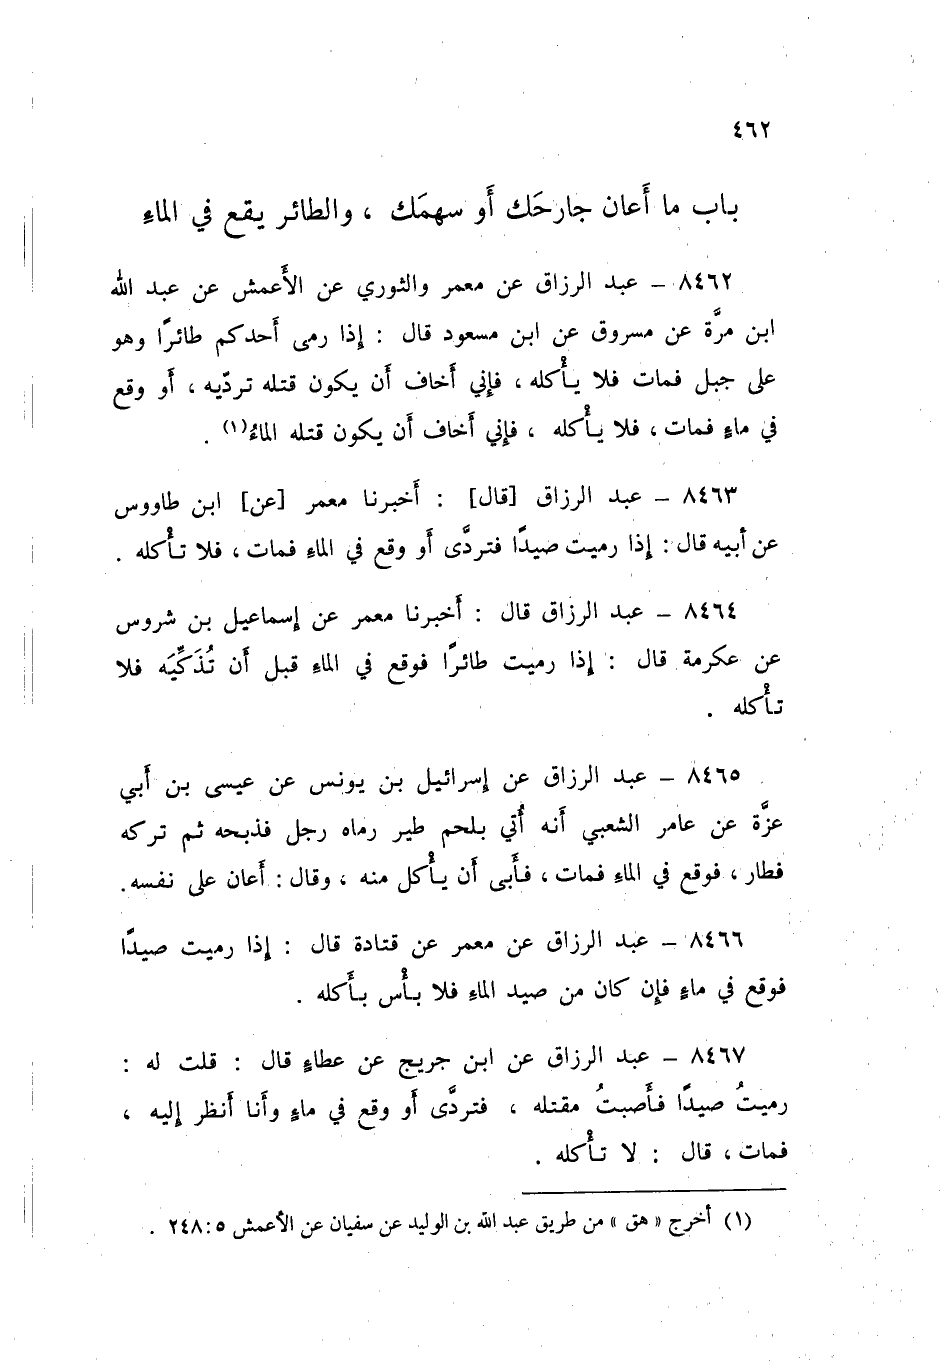 ٤٦٢
باب ما أَعان جارحَك أَو سهمَك ، والطائر يقع في الماء
٨٤٦٢ – عبد الرزاق عن معمر والثوري عن الأَعمش عن عبد الله
ابن مرَّة عن مسروق عن ابن مسعود قال : إذا رمى أَحدكم طائرًا وهو
على جبل فمات فلا يأْكله ، فإني أَخاف أَن يكون قتله تردّيه ، أَو وقع
في ماءٍ فمات ، فلا يأْكله ، فإني أَخاف أَن يكون قتله الماءُ(١) .
٨٤٦٣ – عبد الرزاق [قال] : أَخبرنا معمر [عن] ابن طاووس
عن أَبيه قال : إذا رميت صيدًا فتردَّى أَو وقع في الماءِ فمات ، فلا تأْكله .
٨٤٦٤ – عبد الرزاق قال : أَخبرنا معمر عن إسماعيل بن شروس
عن عكرمة قال : إذا رميت طائرًا فوقع في الماءِ قبل أَن تُذَكِّيَه فلا
تأْكله .
٨٤٦٥ – عبد الرزاق عن إسرائيل بن يونس عن عيسى بن أَبي
عزَّة عن عامر الشعبي أَنه أُتي بلحم طير رماه رجل فذبحه ثم تركه
فطار ، فوقع في الماءِ فمات ، فأَبى أَن يأْكل منه ، وقال : أَعان على نفسه .
٨٤٦٦ – عبد الرزاق عن معمر عن قتادة قال : إذا رميت صيدًا
فوقع في ماءٍ فإن كان من صيد الماءِ فلا بأْس بأَكله .
٨٤٦٧ – عبد الرزاق عن ابن جريج عن عطاءٍ قال : قلت له :
رميتُ صيدًا فأَصبتُ مقتله ، فتردَّى أَو وقع في ماءٍ وأَنا أَنظر إليه ،
فمات ، قال : لا تأْكله .
(١) أخرج « هق » من طريق عبد الله بن الوليد عن سفيان عن الأعمش ٥ : ٢٤٨ .